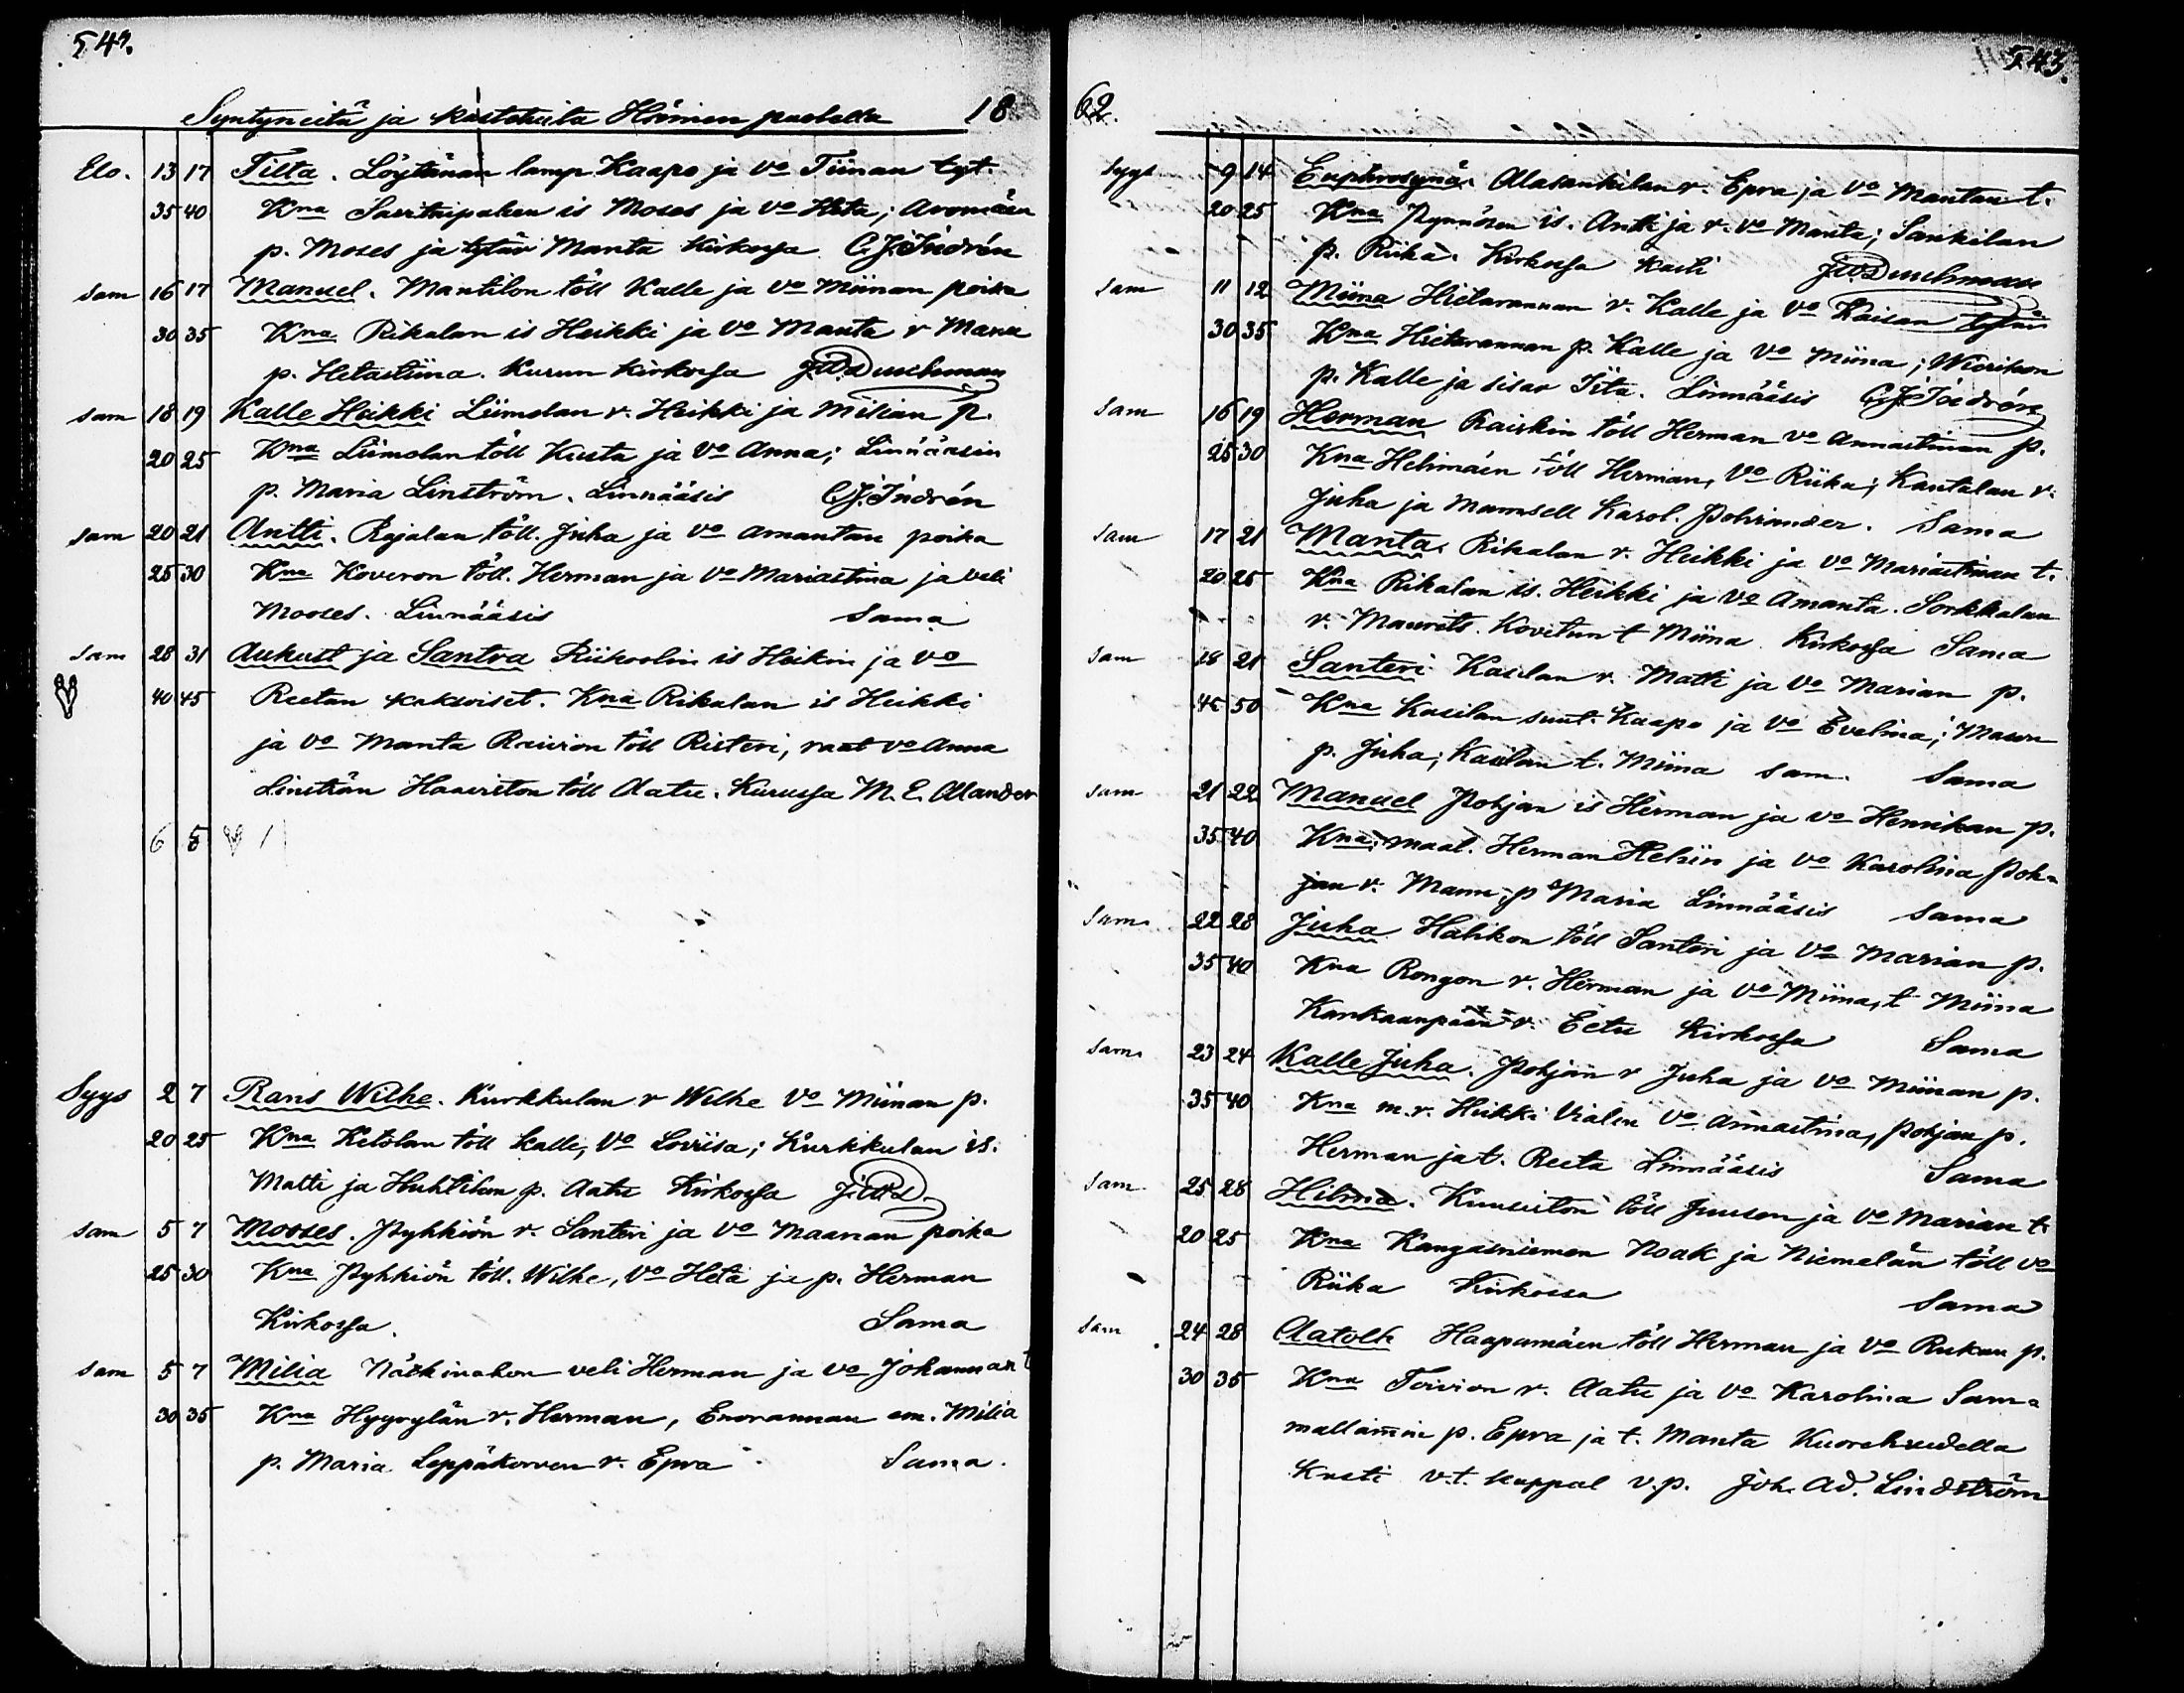 542.
Syntyneitä ja kastetuita Hämeen puolella 18
Elo. 13 17 Tilta. Löytänän lamp Kaapo ja vo Tiinan tyt.
35 40 Kna Savitaipaleen is Moses ja vo Heta; Aromäen
p. Moses ja tytär Manta kirkossa C.J. Indrén
sam 16 17 Manuel. Mantilon töll Kalle ja vo Miinan poika
30 35 Kna Rikalan is Heikki ja vo Manta r Manu
p. Hetastiina. Kurun kirkossa
sam 18 19 Kalle Heikki Liimolan r. Heikki ja Milian p.
20 25 Kna Liimolan töll Kusta ja vo Anna; Linnääsin
p. Maria Linström. Linnääsis C.J. Indrén
sam 20 21 Antti. Rajalan töll. Juha ja vo Amantan poika
25 30 Kna Koveron töll. Herman ja vo Mariastina ja veli
Mooses. Linnääsis Sama
sam 28 31 Aukust ja Santra Riihoolin is Heikin ja vo
40 45 Reetan kaksoiset. Kna Rikalan is Heikki
ja vo Manta Raivion töll Risteri, raat vo Anna
Linström Haaviston töll Aatu. Kurussa M.E. Alander
6 5 1
Syys 2 7 Rans Wilhe. Kurkkulan r Wilhe vo Miinan p.
20 25 Kna Ketolan töll Kalle, vo Loviisa; Kurkkulan is.
Matti ja Huhtilan p. Aatu Kirkossa
sam 5 7 Mooses. Pyhhiön r. Santeri ja vo Maarian poika
25 30 Kna Pyhhiön töll. Wilhe, vo Heta ja p. Herman
Kirkossa. Sama
sam 5 7 Milia veli Herman ja vo Johannan t
30 35 Kna Hyyrylän r. Herman, Enorannan em. Milia
p. Maria Leppäkorven r. Epra Sama.
543.
62.
Syys 9 14 Euphrosyna. Alasankilan r. Epra ja vo Mantan t.
20 25 Kna Pynnösen is. Antti ja r. vo Manta; Sankilan
p. Riika. Kirkossa kasti
sam 11 12 Miina Hietarannan r. Kalle ja vo Kaisan tytär
30 35 Kna Hietarannan p. Kalle ja vo Miina; Wiorikon
p. Kalle ja sisar Iita. Linnääsis C.J. Indrén
sam 16 19 Herman Raiskin töll Herman vo Annastinan p.
25 30 Kna Helimäen töll Herman, vo Riika; Kantalan r.
Juha ja Mamsell Karol. Pohriander. Sama
sam 17 21 Manta. Rikalan r. Heikki ja vo Mariastinan t.
20 25 Kna Rikalan is. Heikki ja vo Amanta. Sorkkalan
r. Maurits. Kovetun t Miina Kirkossa Sama
sam 18 21 Santeri Kasilan r. Matti ja vo Marian p.
45 50 Kna Kasilan suut. Kaapo ja vo Evelina; Mason
p. Juha; Kasilan t. Miina sam. Sama
sam 21 22 Manuel Pohjan is Herman ja vo Henrikan p.
35 40 Kna maal. Herman Helsin ja vo Karolina Poh-
jan r. Manu. p Maria Linnääsis Sama
sam 22 28 Juha Halikon töll Santeri ja vo Marian p.
35 40 Kna Rongon r. Herman ja vo Miina, t Miina
Kankaanpään r. Eetu Kirkossa Sama
sam 23 24 Kalle Juha. Pohjan r Juha ja vo Miinan p.
35 40 Kna m.r. Heikki Vialen vo Annastina, Pohjan p.
Herman ja t. Reeta Linnääsis Sama
sam 25 28 Hilma. Kuusiston töll Juusen ja vo Marian t.
20 25 Kna Kangasniemen Noak ja Niemelän töll vo
Riika Kirkossa Sama
sam 24 28 Aatolh Haapamäen töll Herman ja vo Rukan p.
30 35 Kna Toivion r. Aatu ja vo Karolina Sam-
mallammin p. Epra ja t. Manta Kuorehvedella
Kasti v.t. kappal v.p. Joh. Ad. Lindström